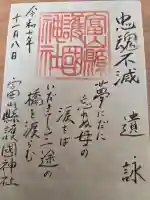 忠魂不滅
遺詠
夢にだに
忘れぬ母の
涙をば
いだきて三途の
橋を渡らむ
富山縣護國神社
令和七年
十一月八日
富山縣
護國